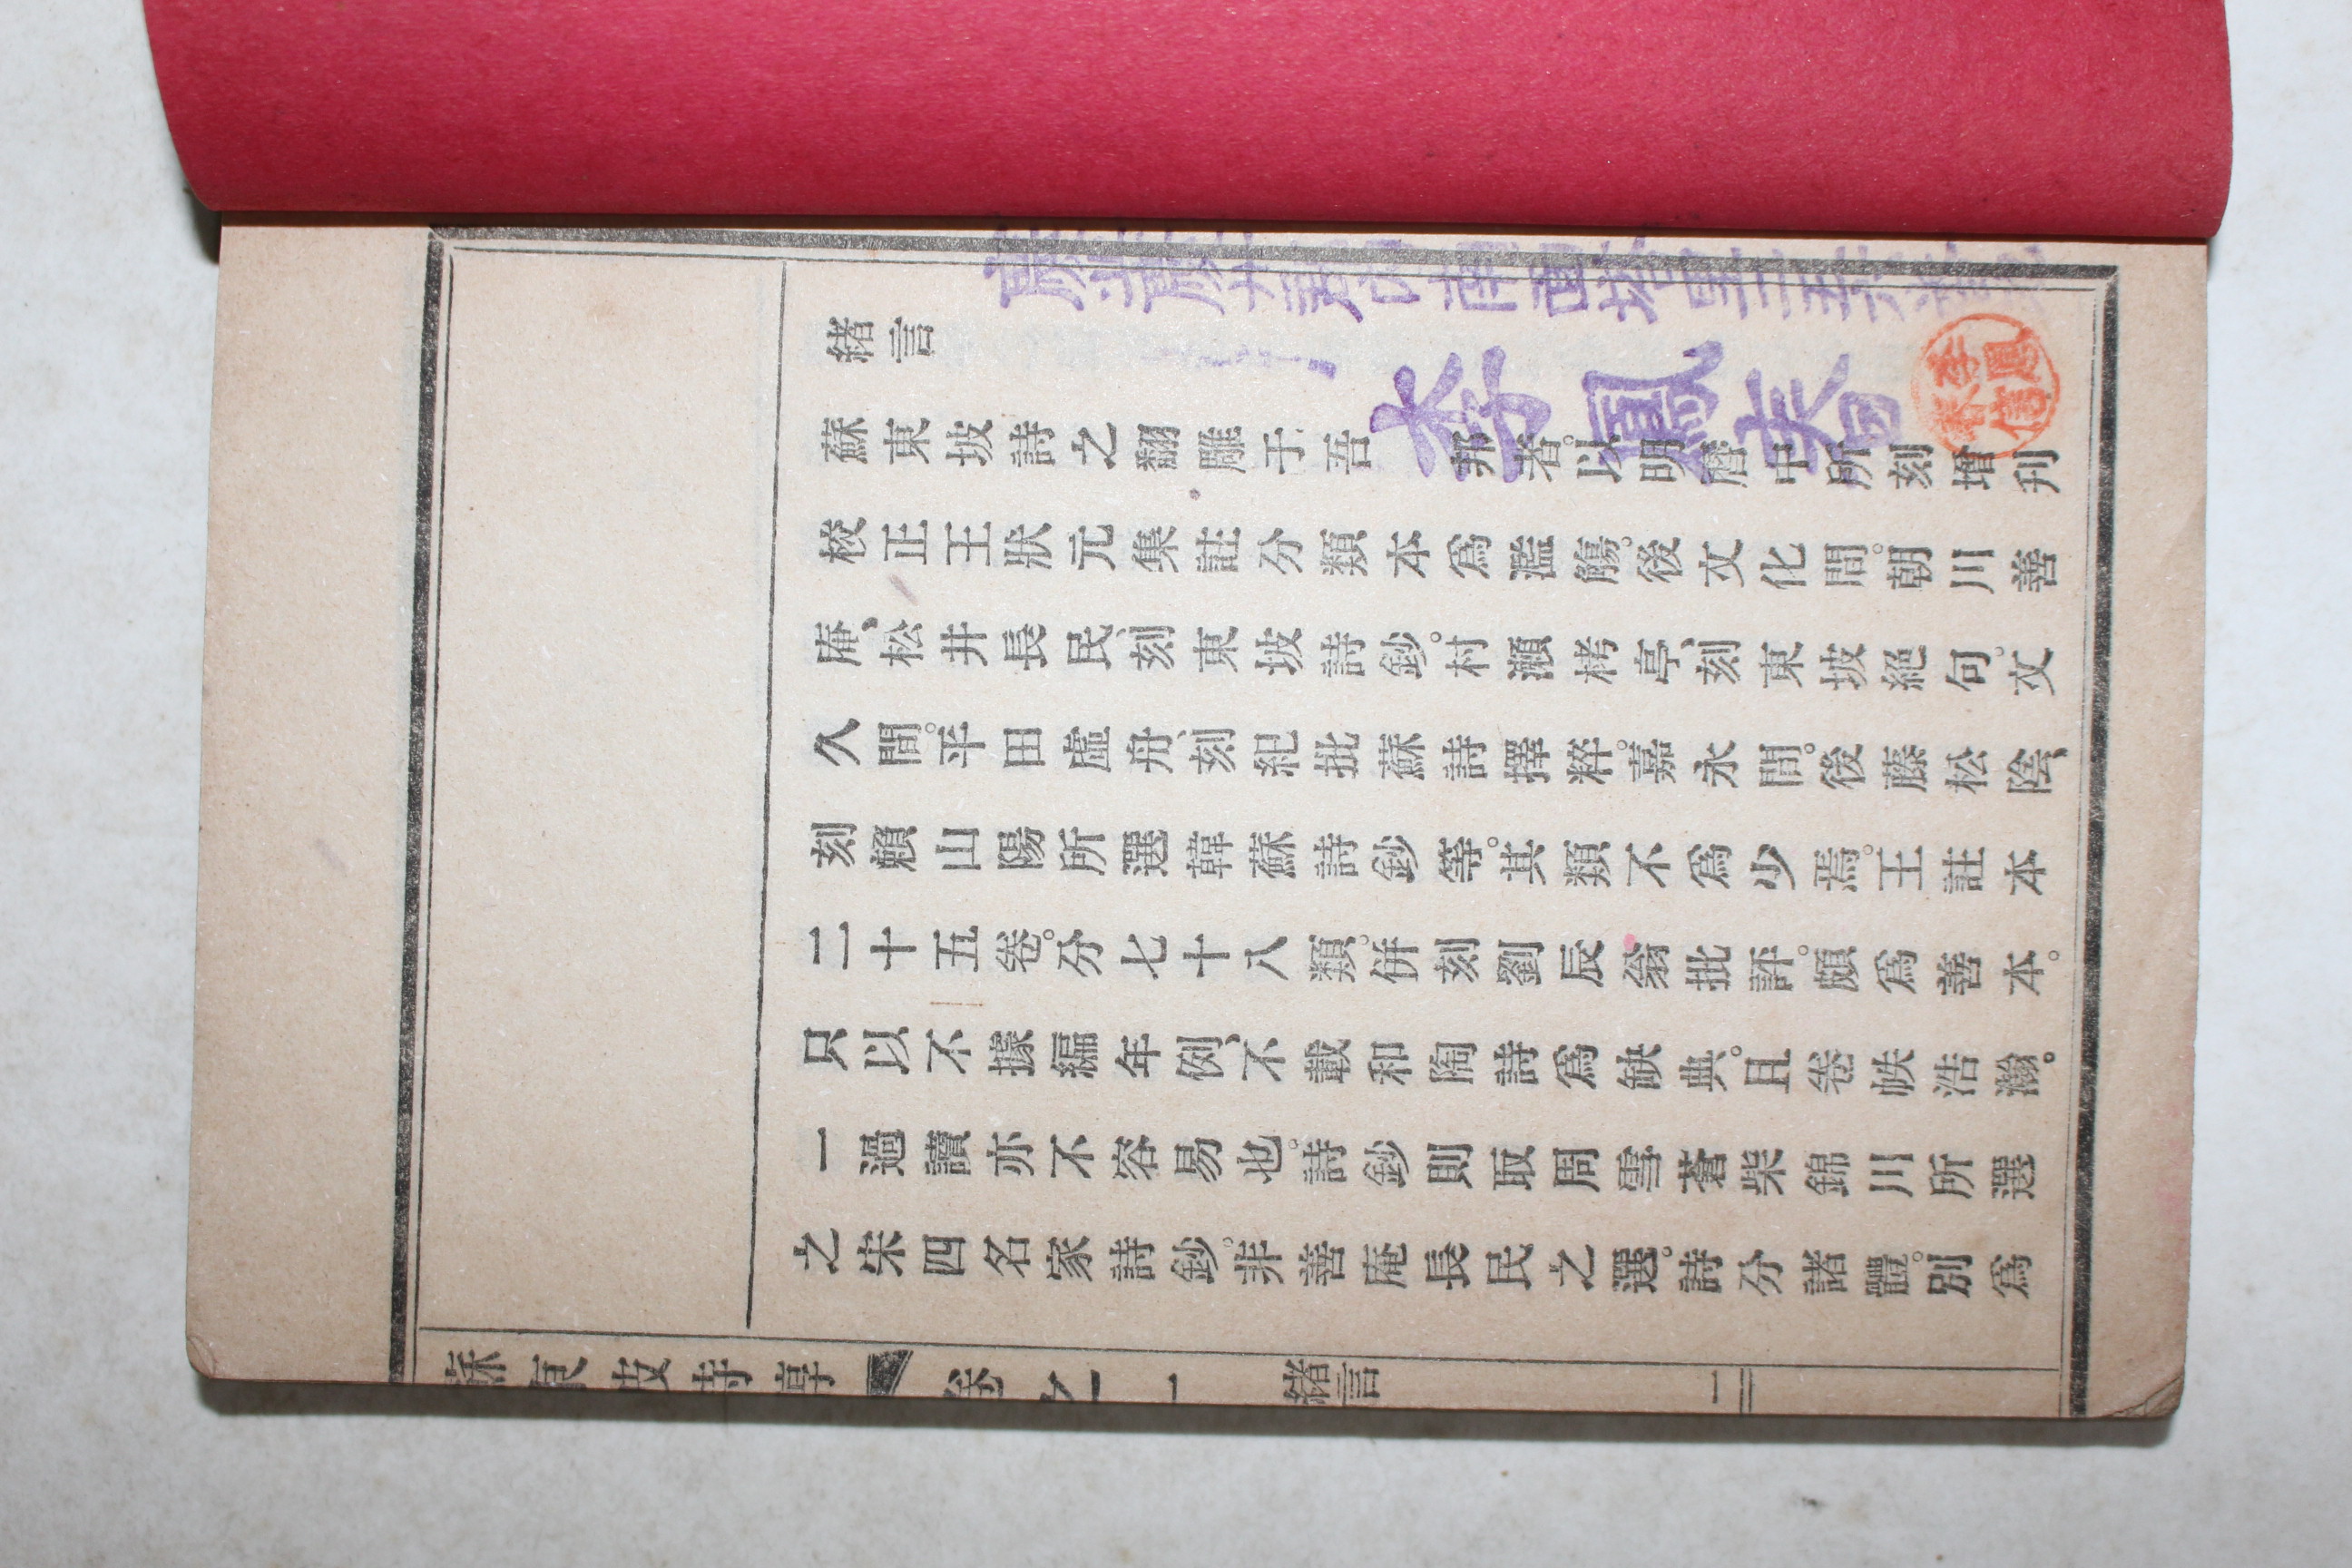 緒言
蘇東坡詩之翻雕于吾邦者。以明曆中所刻增刊
校正王狀元集註分類本爲濫觴。後文化間。朝川善
庵、松井長民、刻東坡詩鈔。村瀨栲亭、刻東坡絕句。文
久間。平田虛舟、刻紀批蘇詩擇粹。嘉永間。後藤松陰、
刻賴山陽所選韓蘇詩鈔等。其類不爲少焉。王註本
二十五卷。分七十八類。併刻劉辰翁批評。頗爲善本。
只以不據編年例、不載和陶詩爲缺典。且卷帙浩瀚。
一過讀亦不容易也。詩鈔則取周雪蒼柴錦川所選
之宋四名家詩鈔。非善庵長民之選。詩分諸體。別爲
緒言 一
李鳳